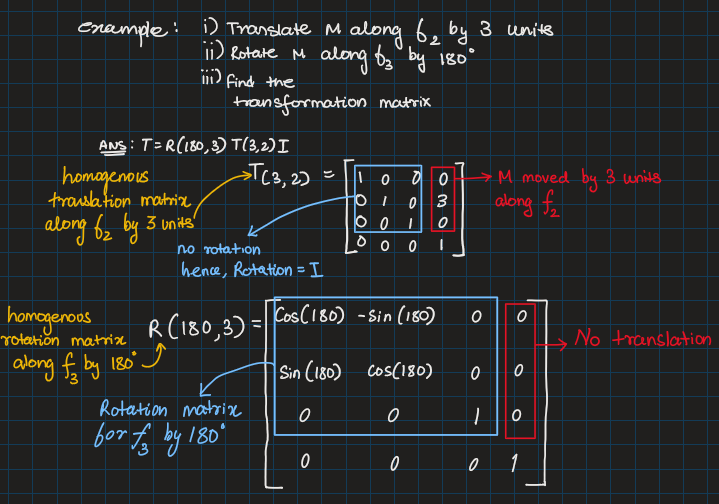 example: i) Translate M along f2 by 3 units
ii) Rotate M along f3 by 180°
iii) Find the
transformation matrix
ANS: T=R(180,3) T(3,2) I
homogenous
translation matrix
along f2 by 3 units
T(3,2) =
1 0 0 0
0 1 0 3
0 0 1 0
0 0 0 1
M moved by 3 units
along f2
no rotation
hence, Rotation = I
homogenous
rotation matrix
along f3 by 180°
R(180,3) =
Cos(180) -Sin(180) 0 0
Sin(180) Cos(180) 0 0
0 0 1 0
0 0 0 1
No translation
Rotation matrix
for f3 by 180°